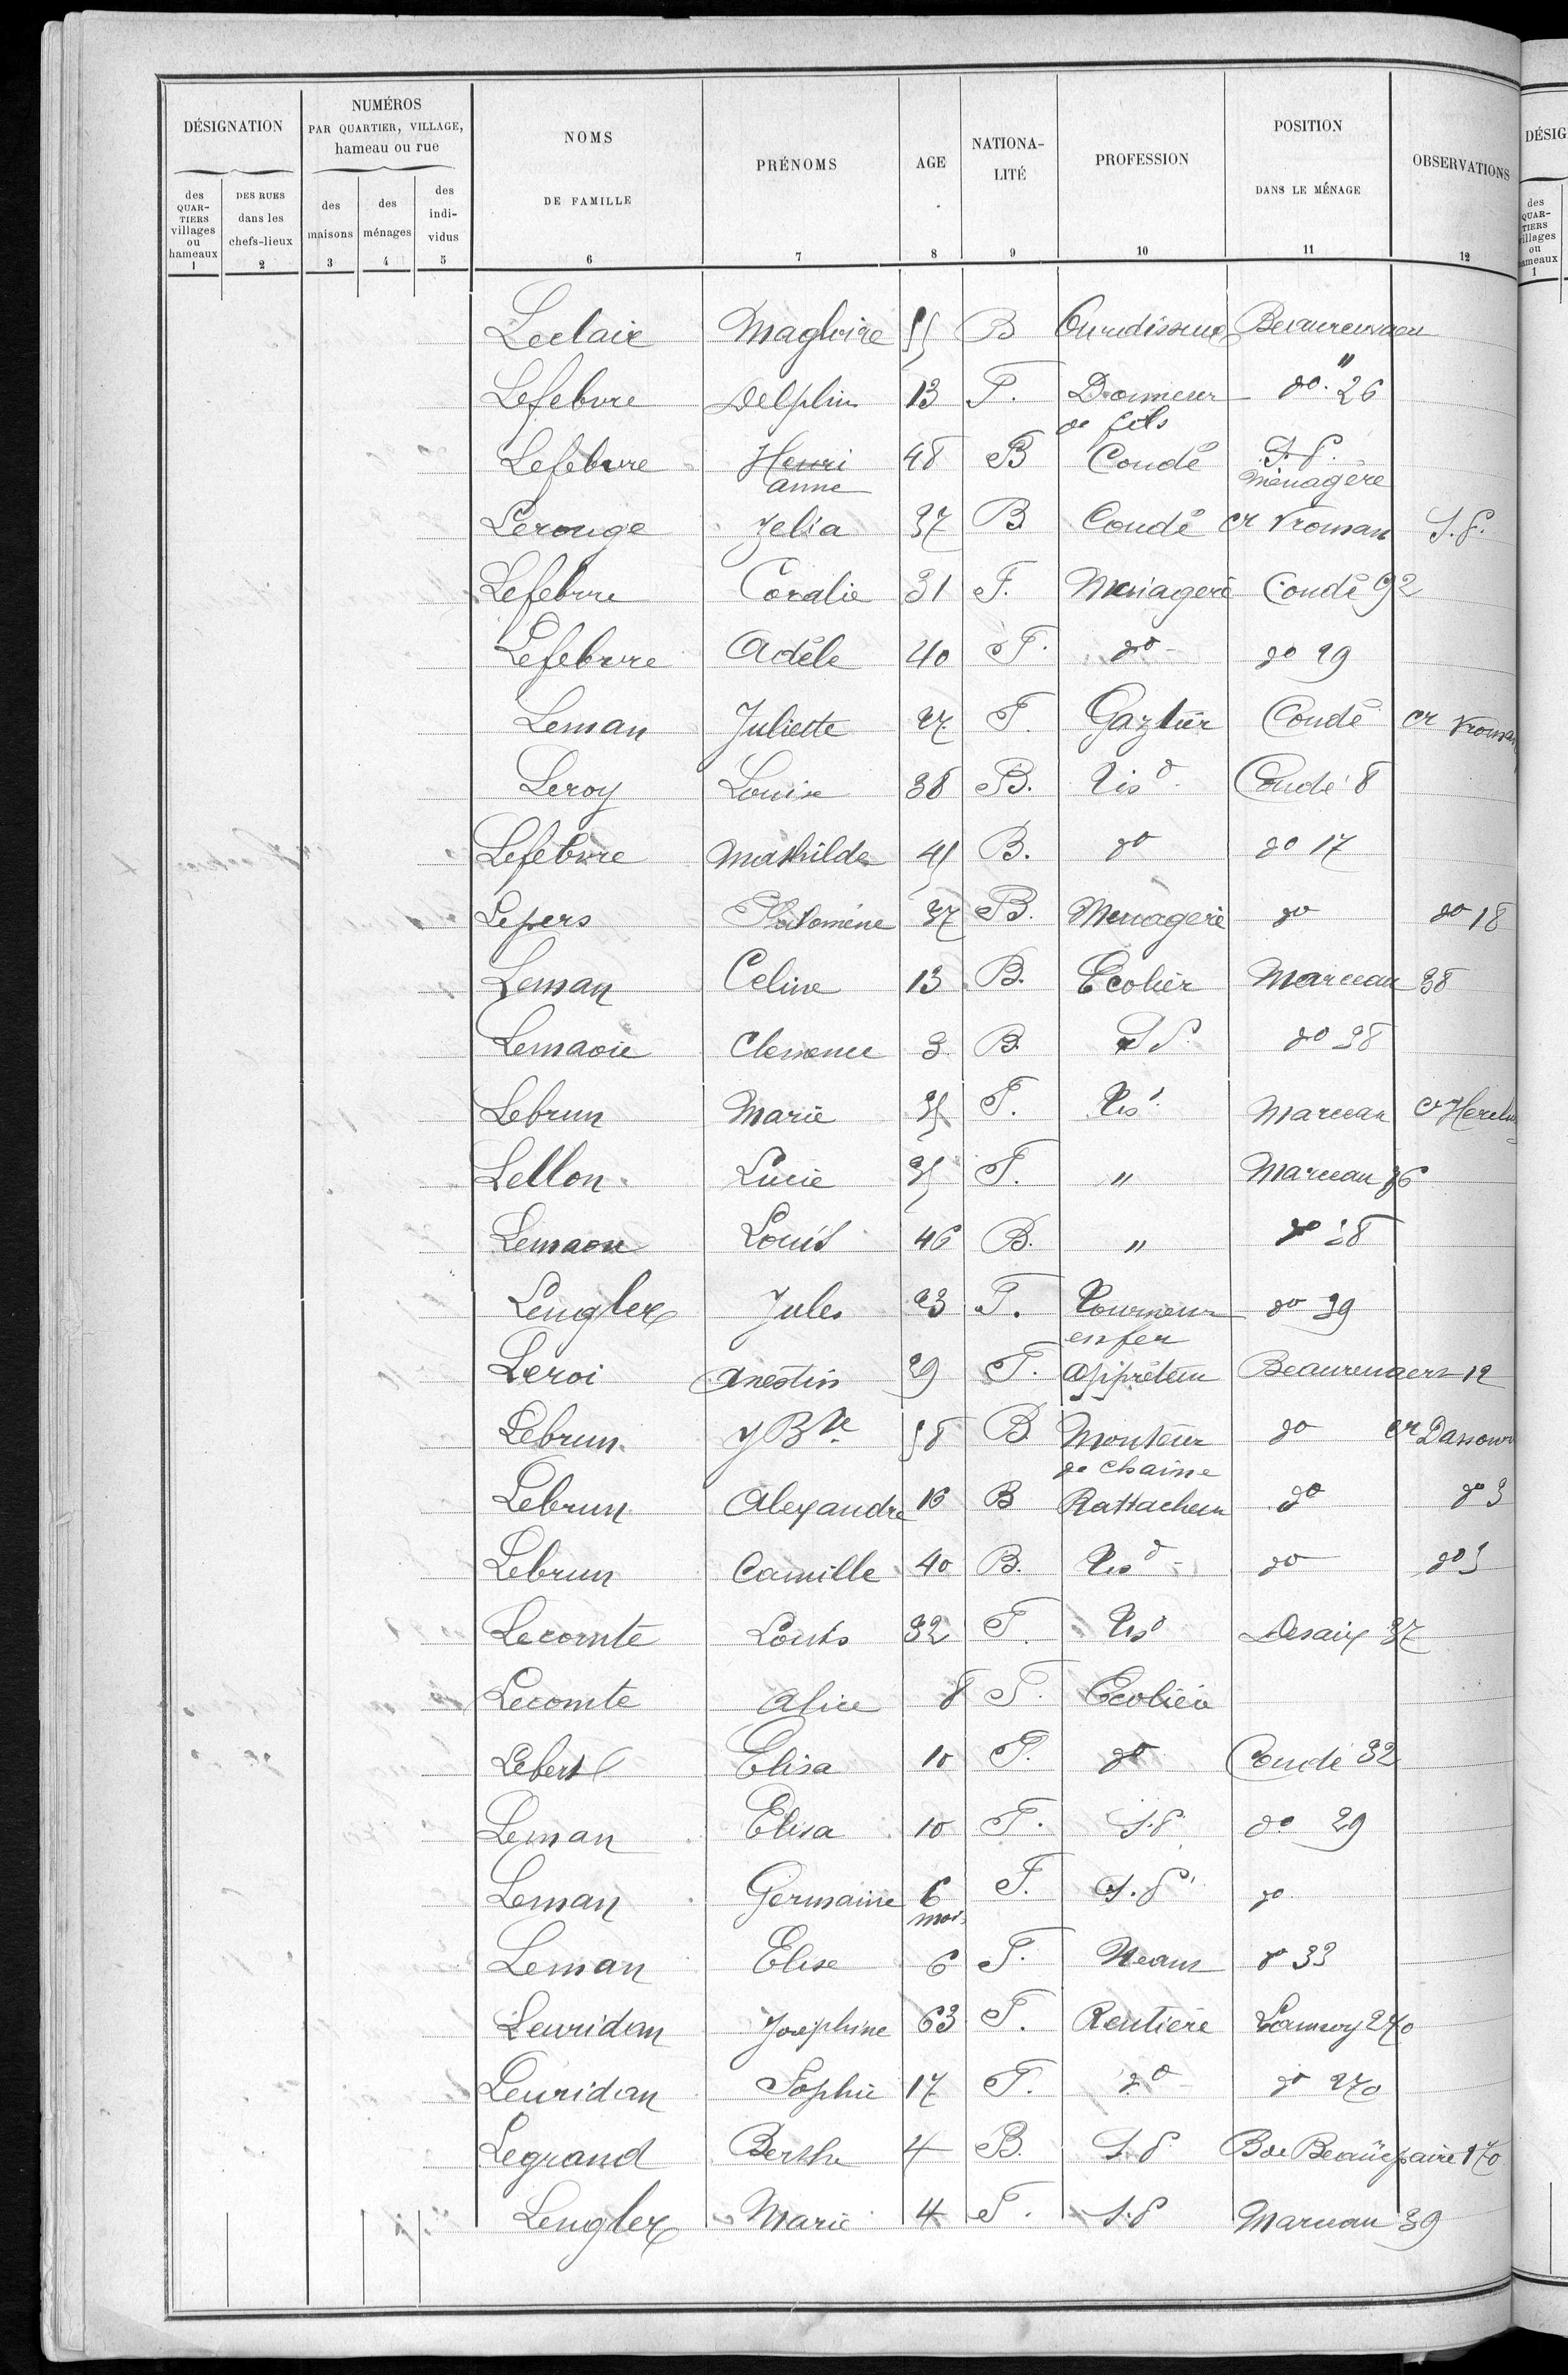 DÉSIGNATION
NUMÉROS
PAR QUARTIER, VILLAGE,
hameau ou rue
NOMS
DE FAMILLE
PRÉNOMS
AGE
NATIONA-
LITÉ
PROFESSION
POSITION
DANS LE MÉNAGE
OBSERVATIONS
DÉSIG
des QUAR-TIERS villages ou hameaux
DES RUES dans les chefs-lieux
des maisons
des ménages
des indi-vidus
1 2 3 4 5 6 7 8 9 10 11 12
Leclair Magloire 55 B Ourdisseur
Lefebvre Delphin 13 F. do 26
de fils
Lefebvre Henri 48 B Condé S.P.
anne ménagère
Lerouge Zelia 37 B Condé cr Vroman S.P.
Lefebvre Coralie 31 F. Menagère Condé 92
Lefebvre Adèle 40 F. do do 29
Leman Juliette 27 F. Condé cr Vroman
Leroy Louise 38 B. Tisd Condé 8
Lefebvre Mathilde 41 B. do do 17
Lepers Philomène 37 B. Menagère do do 18
Leman Celine 13 B. Ecolier Marceau 38
Clemence 3 B. S P. do 38
Lebrun Marie 35 F. Marceau cr
Lellon Lucie 35 F. " Marceau 36
Louis 46 B. " do 38
Lenglex Jules 23 F. Tourneur do 39
en fer
Leroi Anestin 29 F. Apprêteur 12
Lebrun J Bte 58 B. Monteur do cr
de chaine
Lebrun Alexandre 16 B Rattacheur do do 3
Lebrun Camille 40 B. Tisd do do 3
Lecomte Louis 32 F. Tisd Desaix 37
Lecomte Alice 8 F. Ecolier
Lebert Elisa 10 F. do Condé 32
Leman Elisa 10 F. S.P. do 29
Leman Germaine 6 F. S.P. do
mois
Leman Elise 6 F. Neant do 33
Leuridan Joséphine 63 F. Rentière Lannoy 270
Leuridan Sophie 17 F. do do 270
Legrand Berthe 4 B. S.P. B de Beaurepaire 170
Lenglex Marie 4 F. S.P Marceau 39